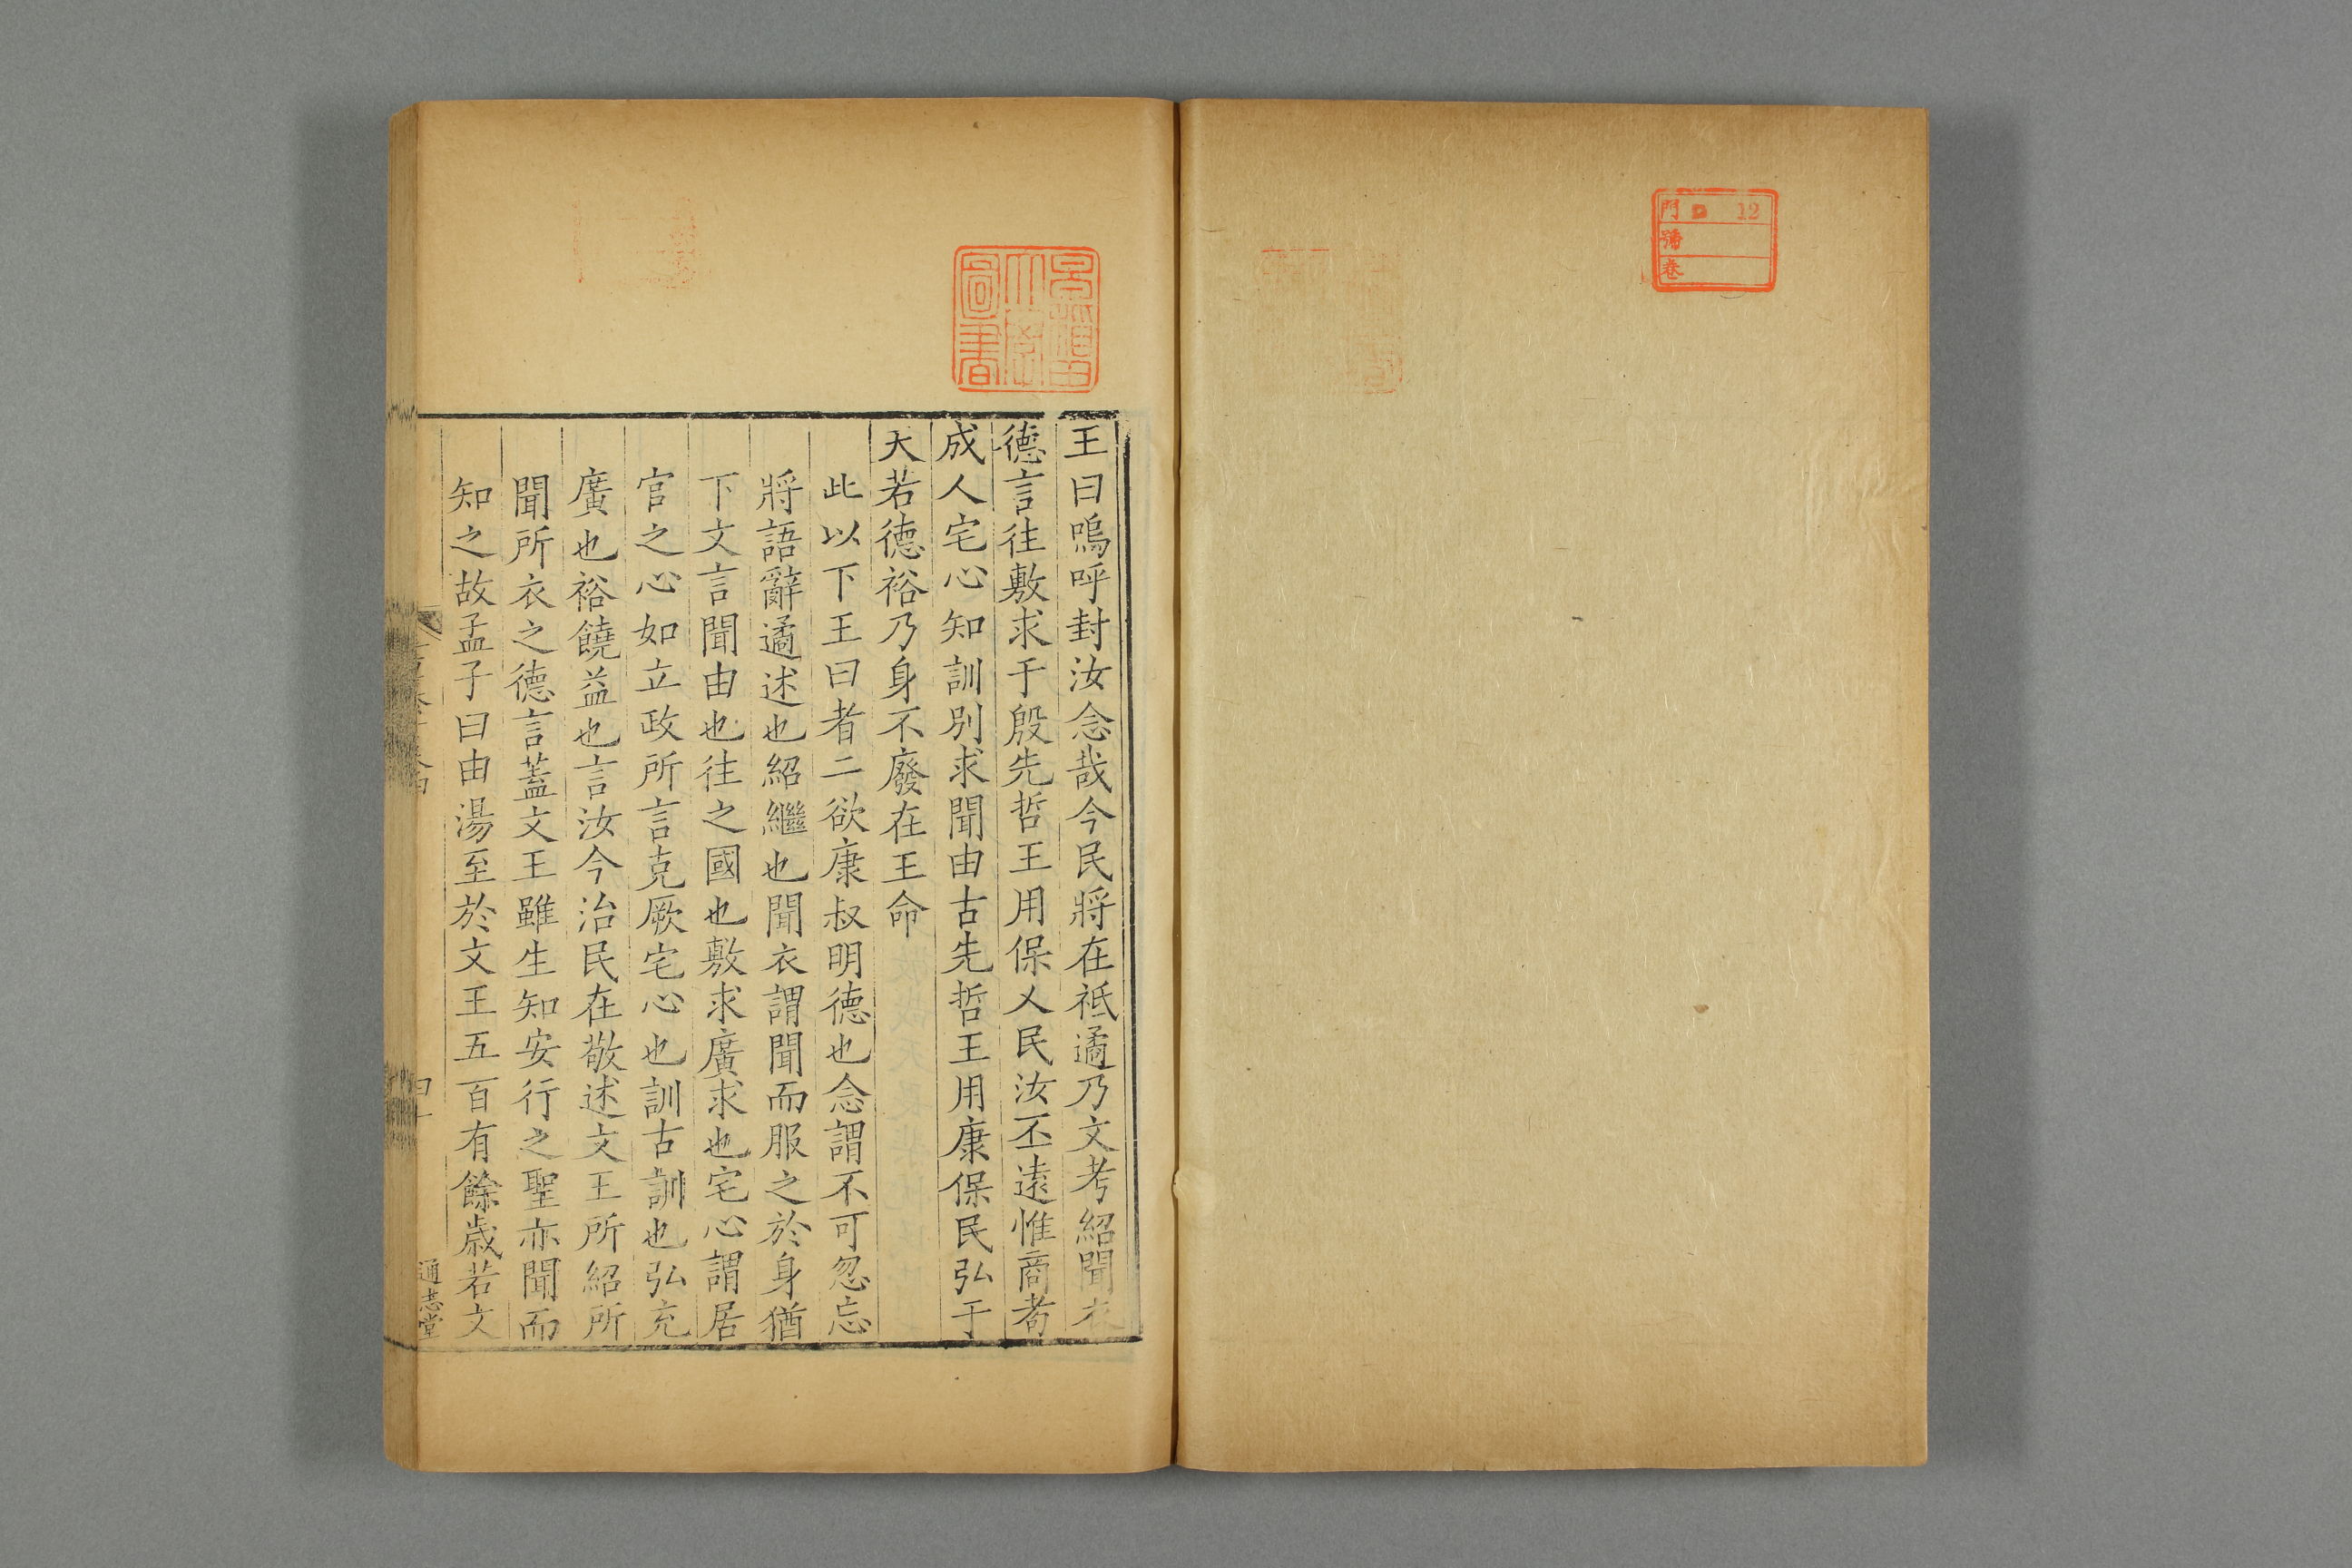 門 D 12
號
卷
圖書
王曰嗚呼封汝念哉今民將在祗遹乃文考紹聞衣
德言往敷求于殷先哲王用保乂民汝丕遠惟商耇
成人宅心知訓別求聞由古先哲王用康保民弘于
天若德裕乃身不廢在王命
此以下王曰者二欲康叔明德也念謂不可忽忘
將語辭遹述也紹繼也聞衣謂聞而服之於身猶
下文言聞由也往之國也敷求廣求也宅心謂居
官之心如立政所言克厥宅心也訓古訓也弘充
廣也裕饒益也言汝今治民在敬述文王所紹所
聞所衣之德言蓋文王雖生知安行之聖亦聞而
知之故孟子曰由湯至於文王五百有餘歲若文
通志堂